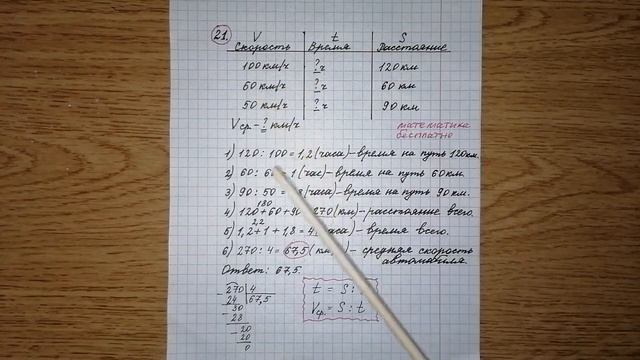 21. V t S
Скорость Время Расстояние
100 км/ч ? ч 120 км
60 км/ч ? ч 60 км
50 км/ч ? ч 90 км
Vср - ? км/ч
математика
бесплатно
1) 120 : 100 = 1,2 (часа) - время на путь 120 км.
2) 60 : 60 = 1 (час) - время на путь 60 км.
3) 90 : 50 = ,8 (часа) - время на путь 90 км.
180
4) 120 + 60 + 90 = 270 (км) - расстояние всего.
2,2
5) 1,2 + 1 + 1,8 = 4 (часа) - время всего.
6) 270 : 4 = 67,5 (км/ - средняя скорость
автомобиля.
Ответ: 67,5
270 4
- 24 67,5
30
- 28
20
- 20
0
t = S :
Vср. = S : t